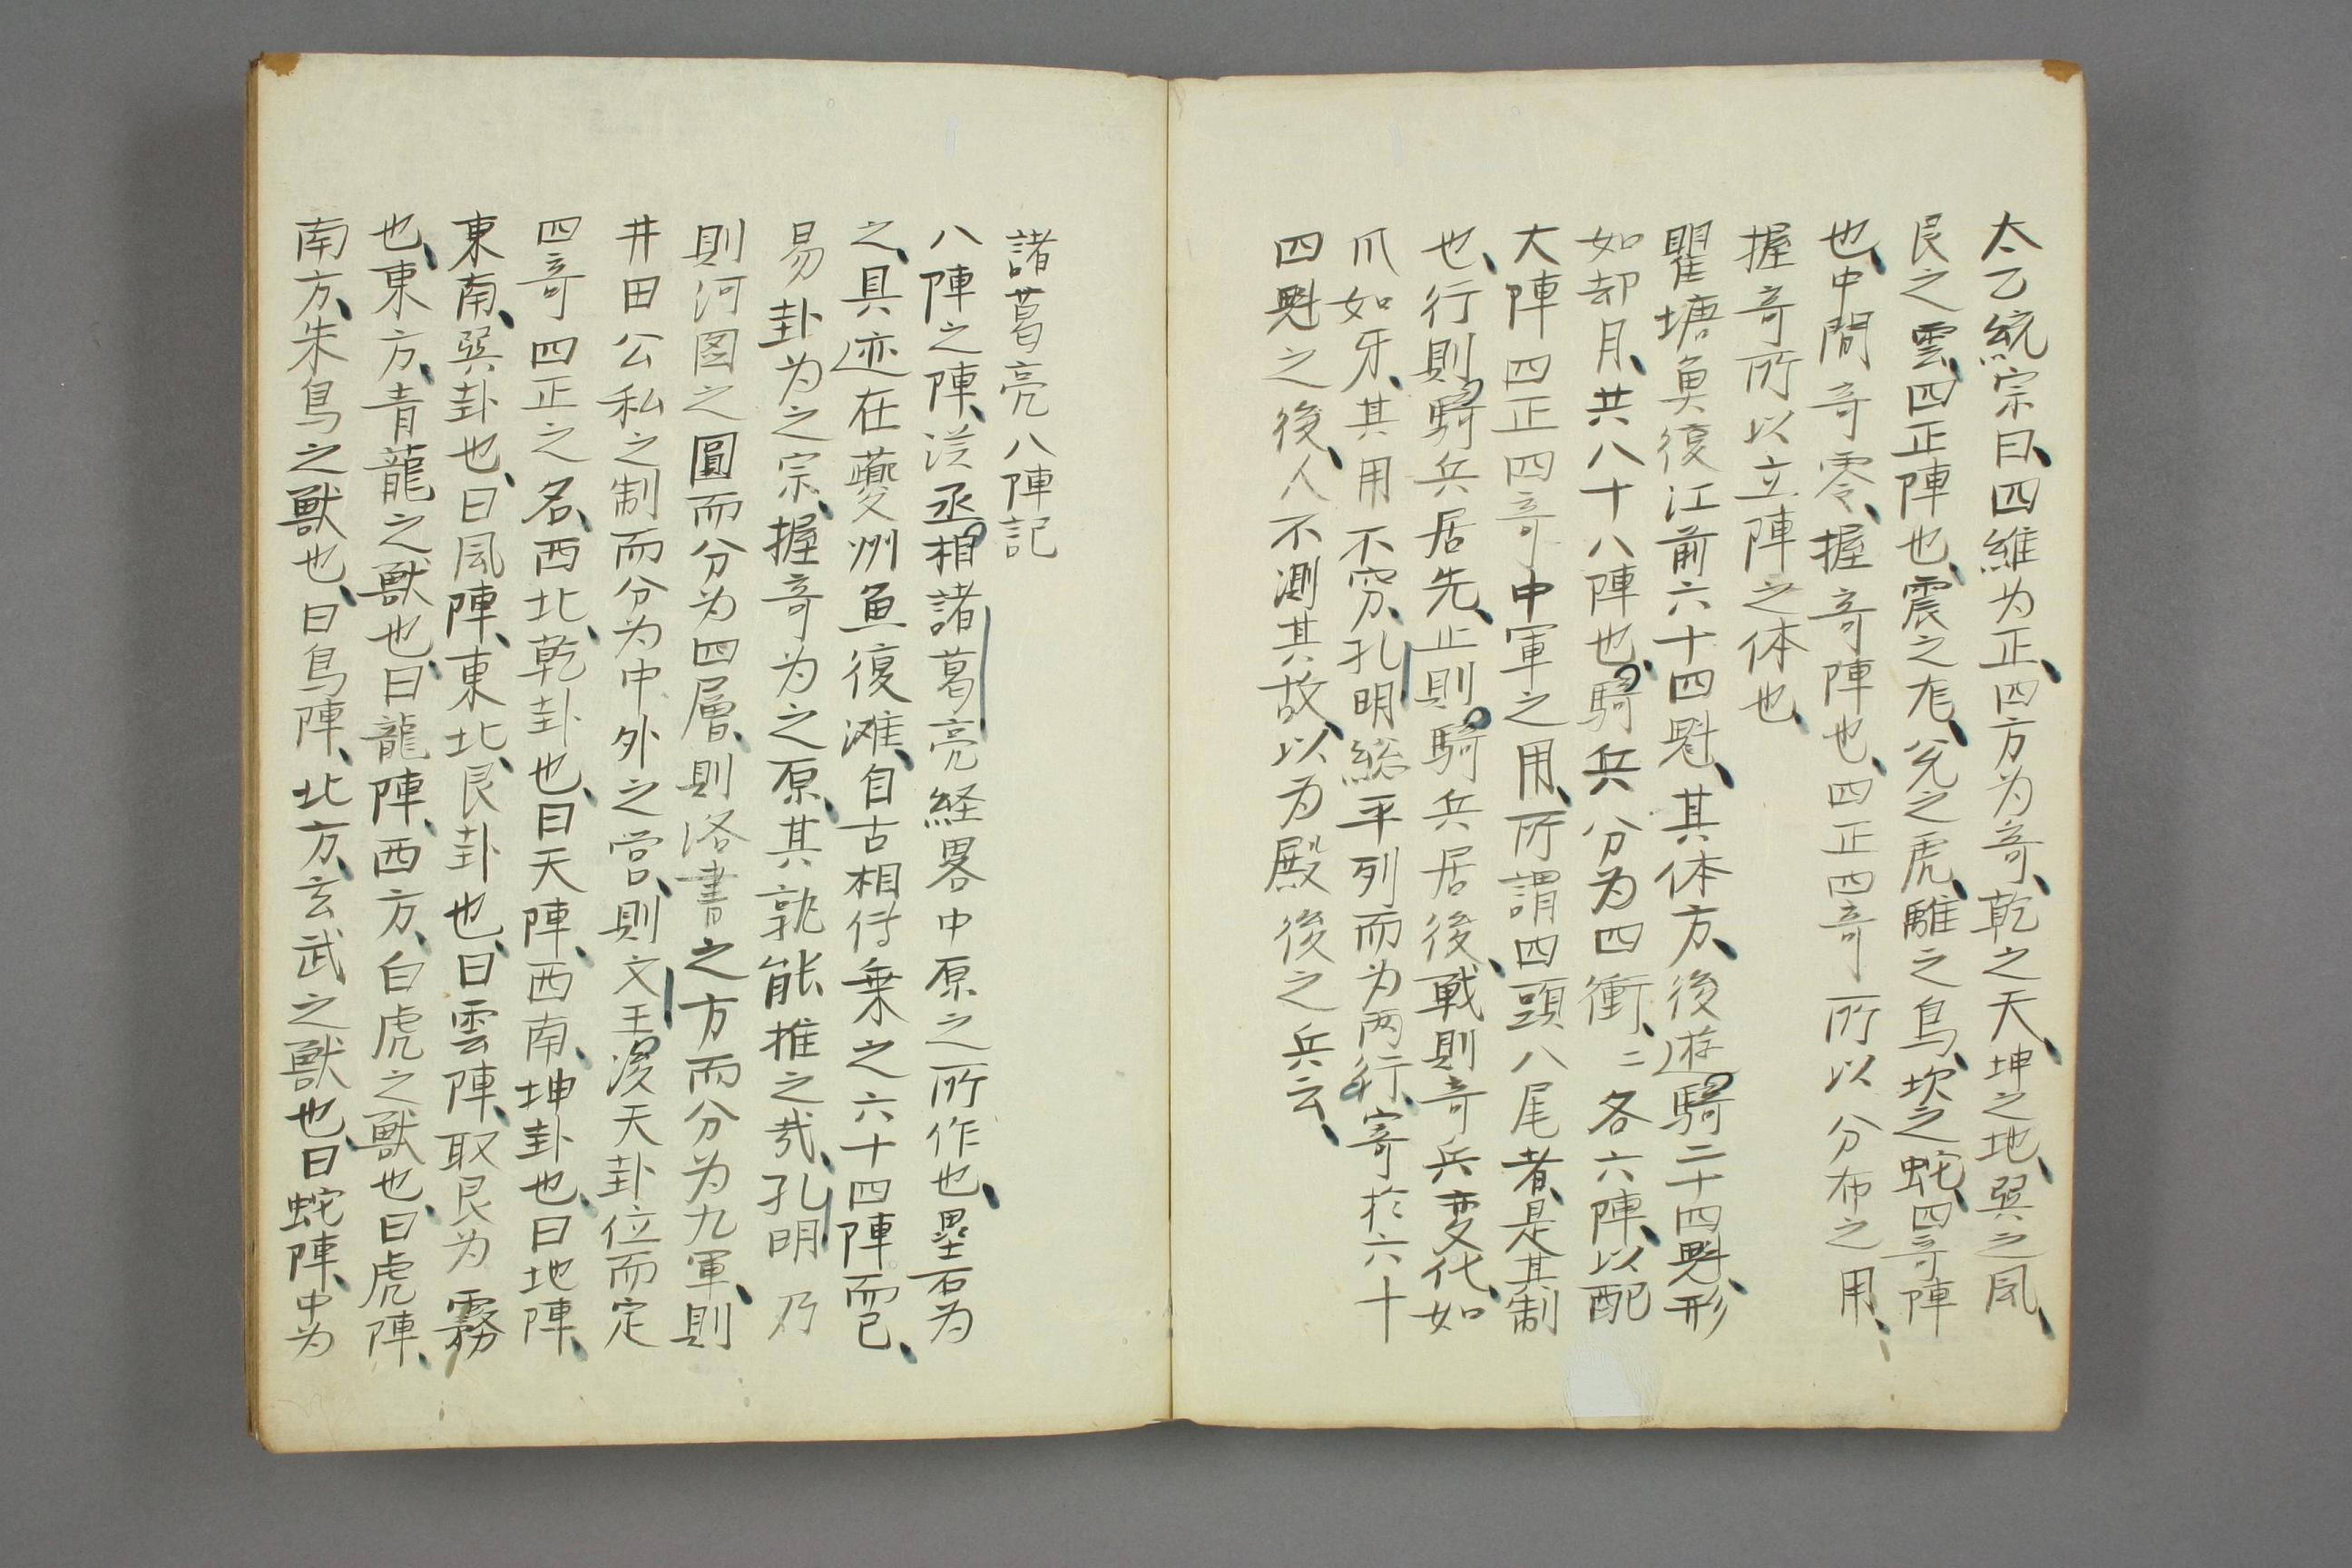 太乙統宗曰、四維为正、四方为竒、乾之天、坤之地、巽之風、
艮之雲、四正陣也、震之尨、兌之虎、離之鳥、坎之蛇、四竒陣
也、中間竒零、握竒陣也、四正四竒所以分布之用、
握竒所以立陣之体也、
瞿塘魚復江前六十四魁、其体方、後遊騎二十四魁、形
如却月、共八十八陣也、騎兵分为四衝、〻各六陣、以配
大陣四正四竒中軍之用、所謂四頭八尾者、是其制
也、行則騎兵居先、止則騎兵居後、戦則竒兵変化、如
爪如牙、其用不窮、孔明総平列而为两行、寄於六十
四魁之後、人不測其故、以为殿後之兵云、
諸葛亮八陣記
八陣之陣、漢丞相諸葛亮経畧中原之所作也、壘石为
之、具迹在夔州魚復滩、自古相传乗之六十四陣而已、
易卦为之宗、握竒为之原、其孰能推之㢤、孔明乃
則河图之圓而分为四層、則洛書之方而分为九軍、則
井田公私之制而分为中外之営、則文王後天卦位而定
四竒四正之名、西北、乾卦也、曰天陣、西南、坤卦也、曰地陣、
東南、巽卦也、曰風陣、東北、艮卦也、曰雲陣、取艮为霧
也、東方、青龍之獣也、曰龍陣、西方、白虎之獣也、曰虎陣、
南方、朱鳥之獣也、曰鳥陣、北方、玄武之獣也、曰蛇陣、中为